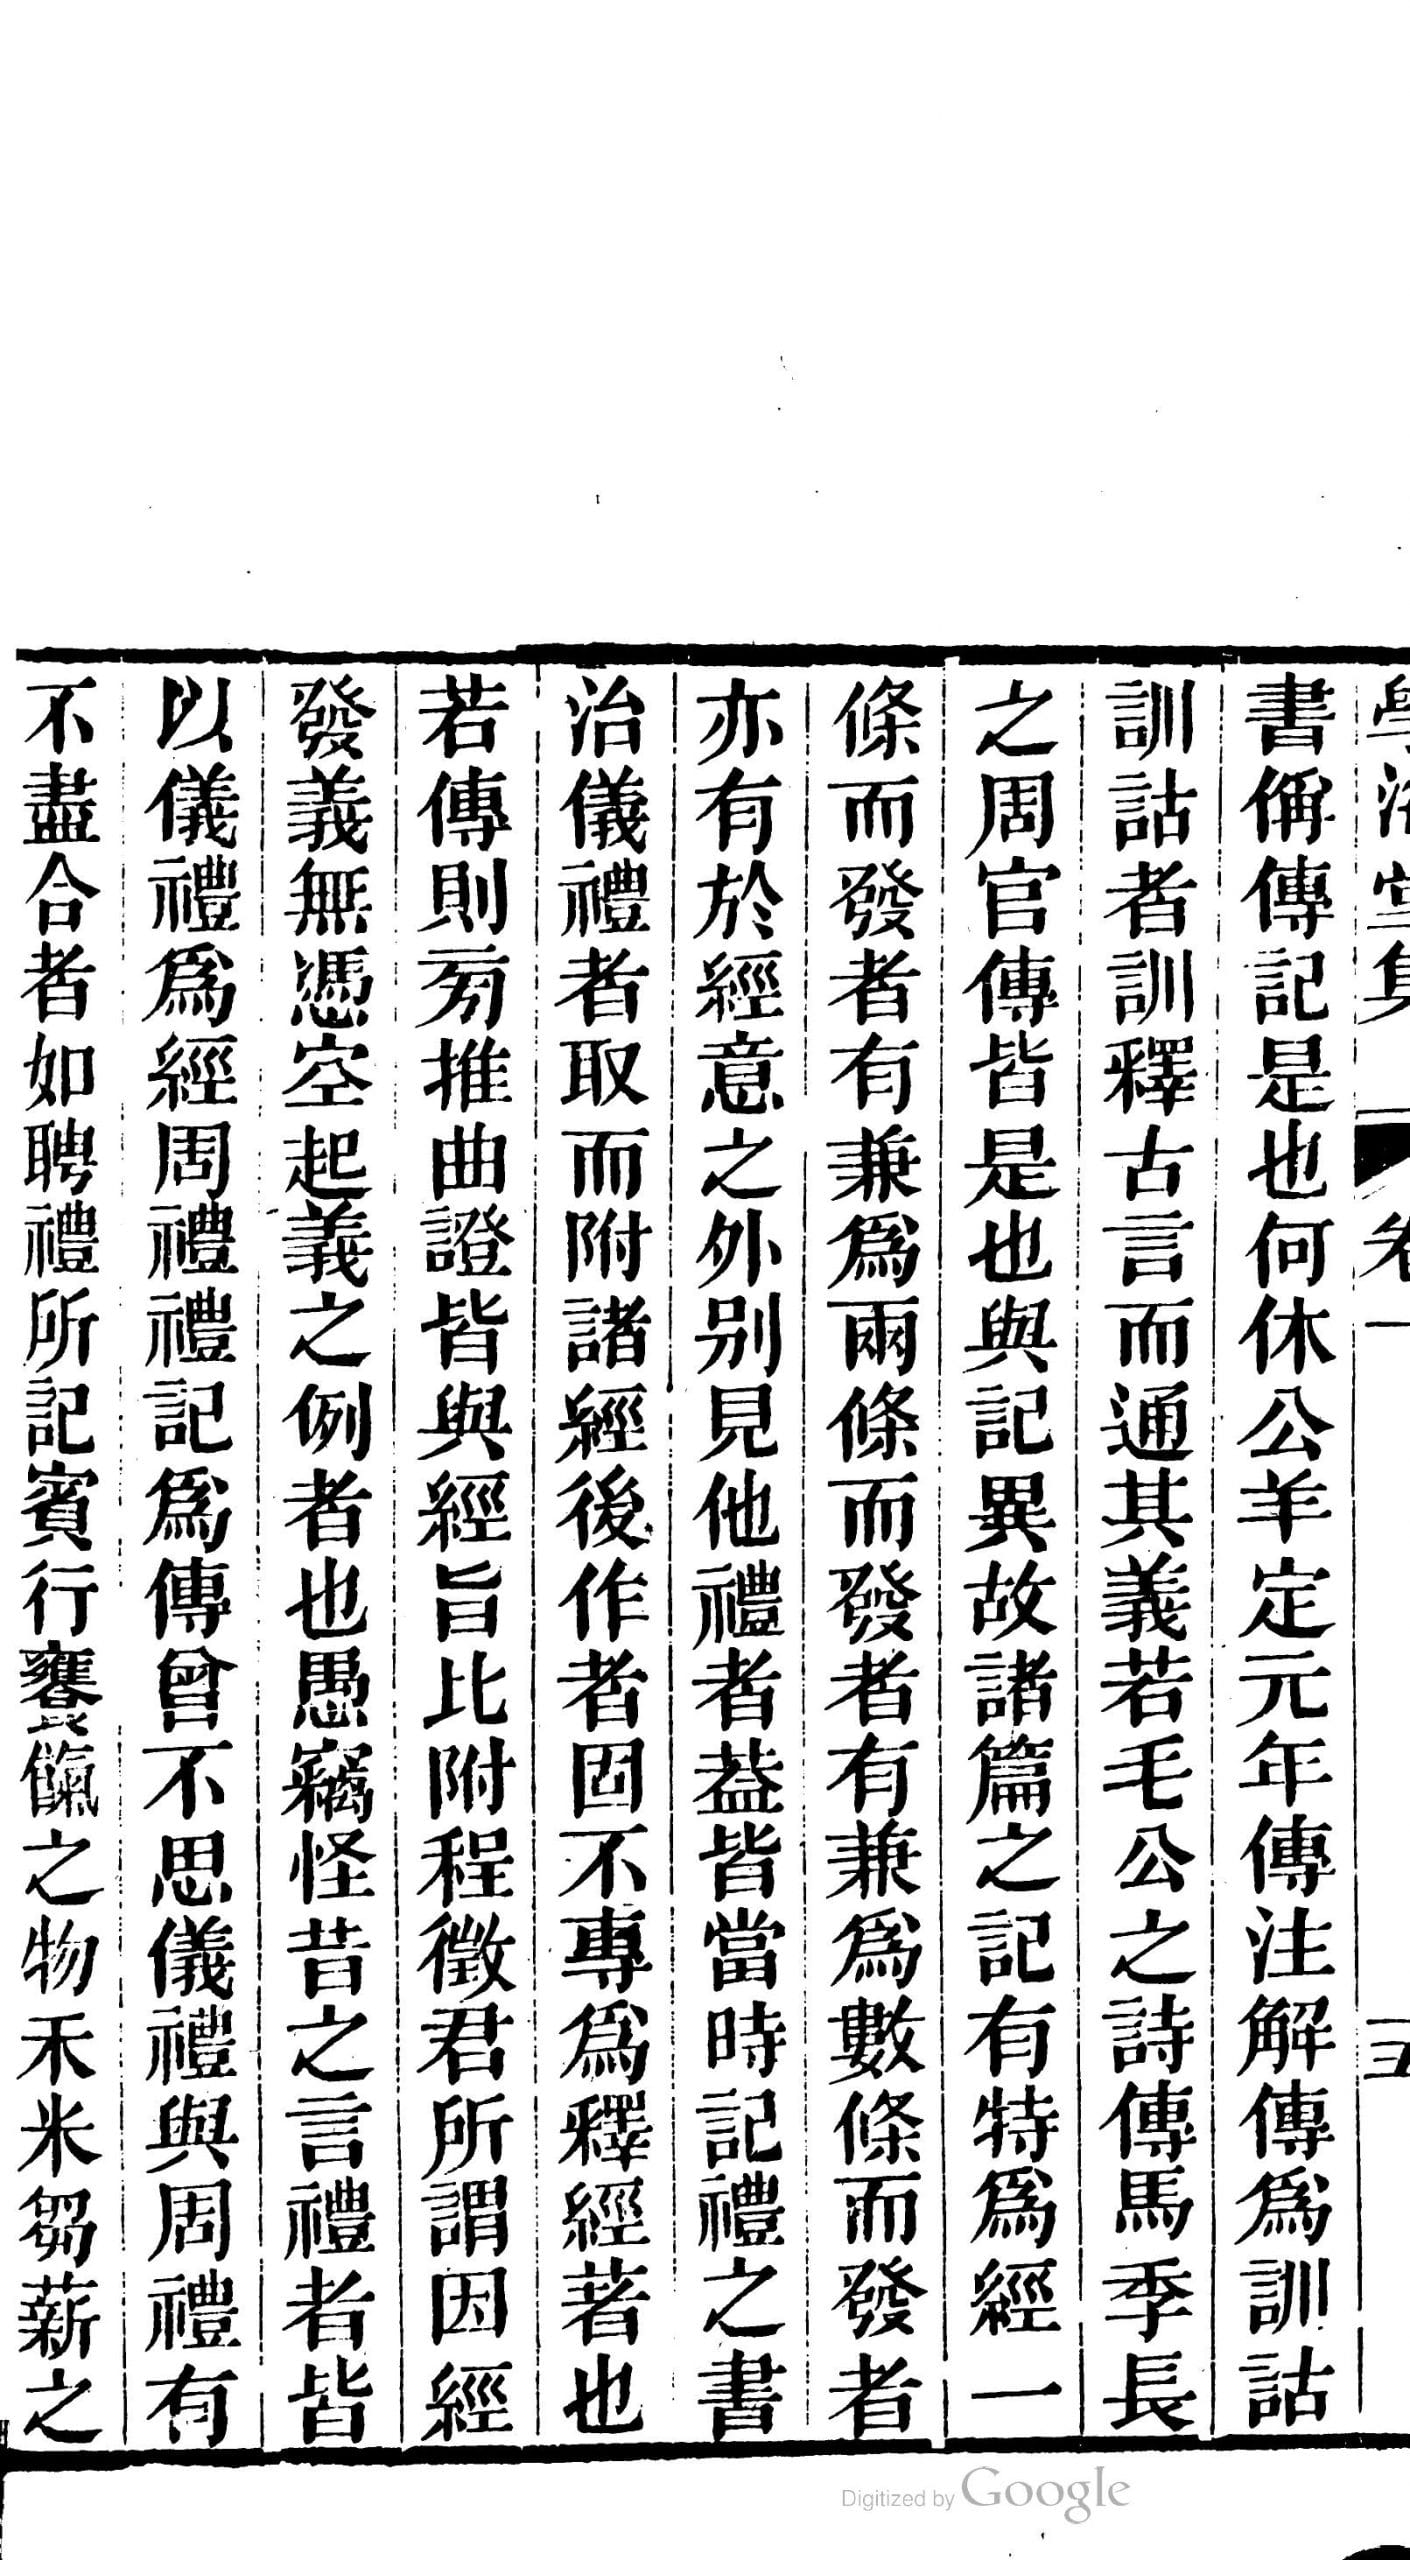 卷一
書偁傳記是也何休公羊定元年傳注解傳爲訓詁
訓詁者訓釋古言而通其義若毛公之詩傳馬季長
之周官傳皆是也與記異故諸篇之記有特爲經一
條而發者有兼爲兩條而發者有兼爲數條而發者
亦有於經意之外別見他禮者葢皆當時記禮之書
治儀禮者取而附諸經後作者固不專爲釋經著也
若傳則旁推曲證皆與經旨比附程徵君所謂因經
發義無憑空起義之例者也愚竊怪昔之言禮者皆
以儀禮爲經周禮禮記爲傳曾不思儀禮與周禮有
不盡合者如聘禮所記賓行饔餼之物禾米芻薪之
Digitized by Google